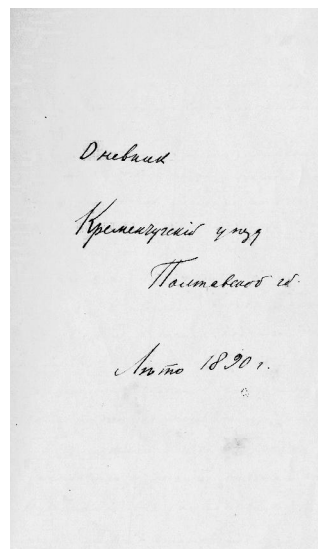 Дневник
Кременчугскій уѣзд
Полтавской гб.
Лѣто 1890 г.